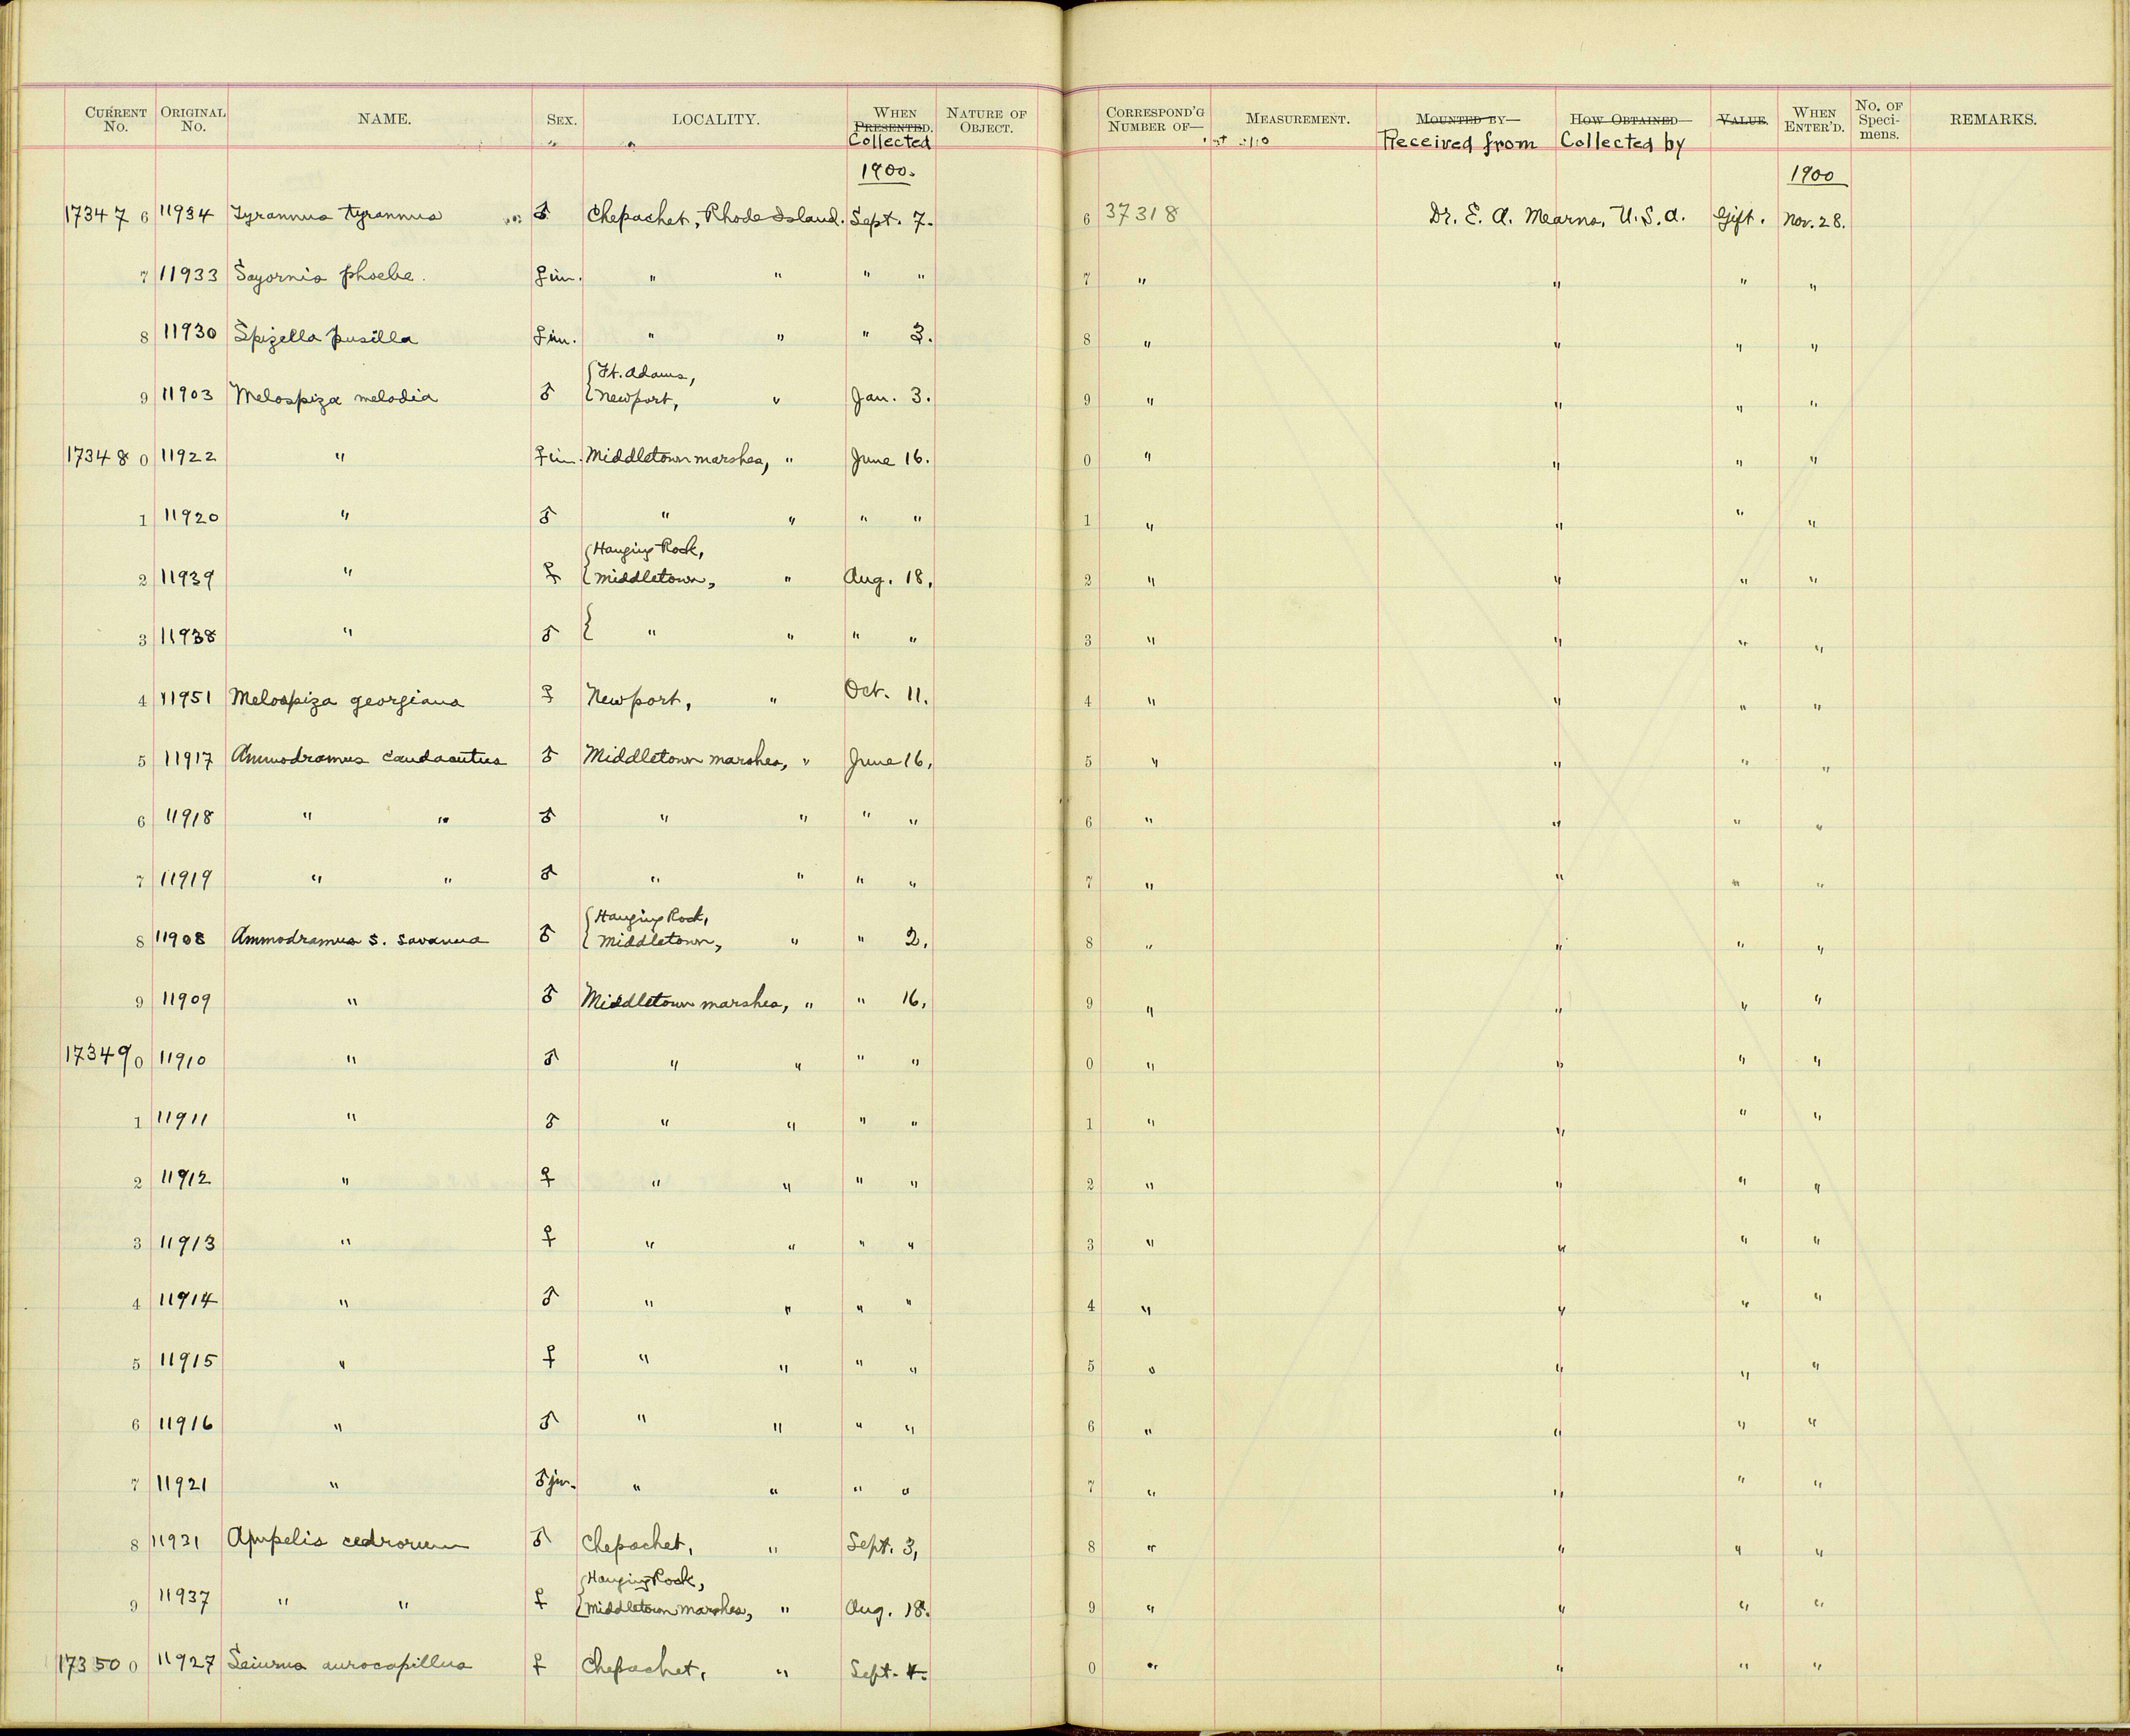 CURRENT No. ORIGINAL No. NAME. SEX. LOCALITY. WHEN PRESENTED. Collected NATURE OF OBJECT. CORRESPOND'G NUMBER OF— MEASUREMENT. MOUNTED BY— Received from HOW OBTAINED— Collected by VALUE. WHEN ENTER'D. No. OF Speci-mens. REMARKS.
1900. 1900
17347 6 11934 Tyrannus tyrannus ♂ Chepachet, Rhode Island. Sept. 7. 6 37318 Dr. E. A. Mearns, U.S.A. Gift. Nov. 28.
7 11933 Sayornis phoebe. ♀ im. " " " " 7 " " " "
8 11930 Spizella pusilla ♀ im. " " " 3. 8 " " " "
{Ft. Adams,
9 11903 Melospiza melodia ♂ {Newport, " Jan. 3. 9 " " " "
17348 0 11922 " ♀ im. Middletown marshes, " June 16. 0 " " " "
1 11920 " ♂ " " " " 1 " " " "
{Hanging Rock,
2 11939 " ♀ {Middletown, " Aug. 18. 2 " " " "
3 11938 " ♂ { " " " " 3 " " " "
4 11951 Melospiza georgiana ♀ Newport, " Oct. 11. 4 " " " "
5 11917 Ammodramus caudacutus ♂ Middletown marshes, " June 16. 5 " " " "
6 11918 " " ♂ " " " " 6 " " " "
7 11919 " " ♂ " " " " 7 " " " "
{Hanging Rock,
8 11908 Ammodramus s. savanna ♂ {Middletown, " " 2. 8 " " " "
9 11909 " ♂ Middletown marshes, " " 16. 9 " " " "
17349 0 11910 " ♂ " " " " 0 " " " "
1 11911 " ♂ " " " " 1 " " " "
2 11912 " ♀ " " " " 2 " " " "
3 11913 " ♀ " " " " 3 " " " "
4 11914 " ♂ " " " " 4 " " " "
5 11915 " ♀ " " " " 5 " " " "
6 11916 " ♂ " " " " 6 " " " "
7 11921 " ♂ juv. " " " " 7 " " " "
8 11931 Ampelis cedrorum ♂ Chepachet, " Sept. 3, 8 " " " "
{Hanging Rock,
9 11937 " " ♀ {Middletown marshes, " Aug. 18. 9 " " " "
17350 0 11927 Seiurus aurocapillus ♀ Chepachet, " Sept. 4. 0 " " " "